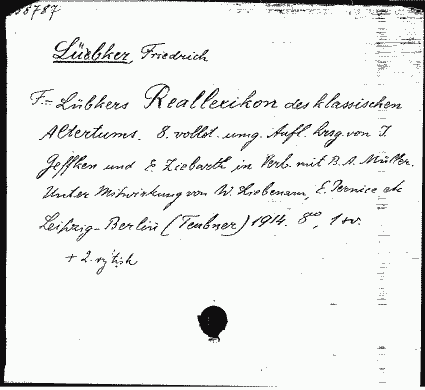 Lübker, Friedrich
F.= Lübkers Reallexikon des klassischen
Altertums. 8. vollst. umg. Aufl. hrsg. von J.
Geffken und E. Ziebarth in Verb. mit B. A. Müller.
Unter Mitwirkung von W. Liebenam, E. Pernice etc
Leipzig-Berlin (Teubner) 1914. 8°, 1 sv.
+ 2. výtisk